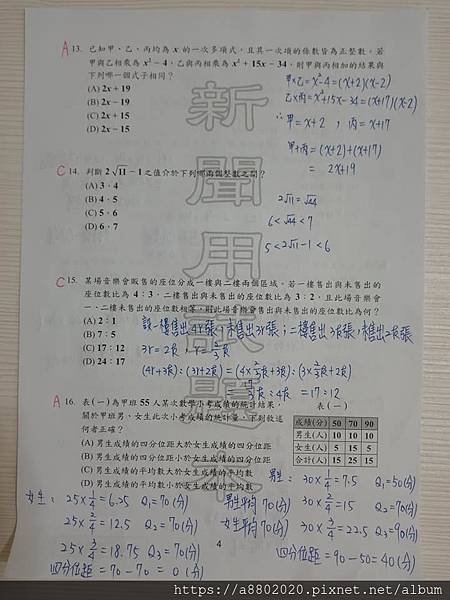 A 13. 已知甲、乙、丙均為 x 的一次多項式，且其一次項的係數皆為正整數。若
甲與乙相乘為 x²－4，乙與丙相乘為 x²＋15x－34，則甲與丙相加的結果與
下列哪一個式子相同？
(A) 2x＋19
(B) 2x－19
(C) 2x＋15
(D) 2x－15
甲×乙=x²-4=(x+2)(x-2)
乙×丙=x²+15x-34=(x+17)(x-2)
∴甲=x+2，丙=x+17
甲+丙=(x+2)+(x+17)
= 2x+19
C 14. 判斷 2√11－1 之值介於下列哪兩個整數之間？
(A) 3，4
(B) 4，5
(C) 5，6
(D) 6，7
2√11=√44
6<√44<7
5<2√11-1<6
C 15. 某場音樂會販售的座位分成一樓與二樓兩個區域。若一樓售出與未售出的
座位數比為 4：3，二樓售出與未售出的座位數比為 3：2，且此場音樂會
一、二樓未售出的座位數相等，則此場音樂會售出與未售出的座位數比為何？
(A) 2：1
(B) 7：5
(C) 17：12
(D) 24：17
設一樓售出4r張，未售出3r張；二樓售出3k張，未售出2k張
3r=2k，r=2/3k
(4r+3k):(3r+2k)=(4×2/3k+3k):(3×2/3k+2k)
=17/3k:4k=17:12
A 16. 表(一)為甲班 55 人某次數學小考成績的統計結果，
關於甲班男、女生此次小考成績的統計量，下列敘述
何者正確？
(A) 男生成績的四分位距大於女生成績的四分位距
(B) 男生成績的四分位距小於女生成績的四分位距
(C) 男生成績的平均數大於女生成績的平均數
(D) 男生成績的平均數小於女生成績的平均數
表(一)
成績(分) 50 70 90
男生(人) 10 10 10
女生(人) 5 15 5
合計(人) 15 25 15
男生：30×1/4=7.5 Q₁=50(分)
30×2/4=15 Q₂=70(分)
30×3/4=22.5 Q₃=90(分)
四分位距=90-50=40(分)
男生平均70(分)
女生平均70(分)
女生：25×1/4=6.25 Q₁=70(分)
25×2/4=12.5 Q₂=70(分)
25×3/4=18.75 Q₃=70(分)
四分位距=70-70=0(分)
4
新聞用試題本
https://a8802020.pixnet.net/album